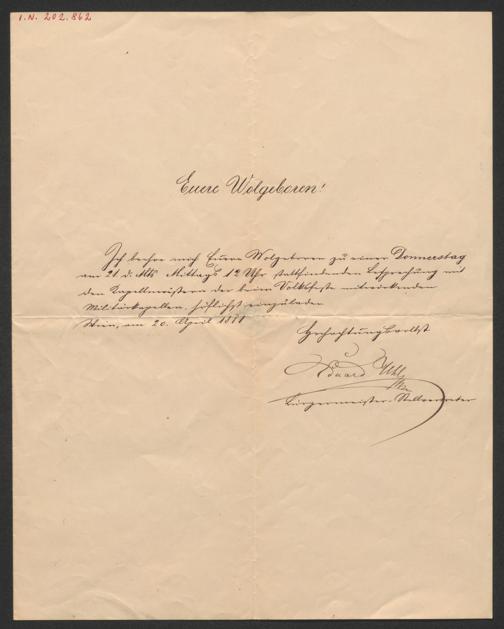 I.N. 202.862
Euere Wolgeboren!
Ich beehre mich Euere Wolgeboren zu einer Donnerstag
am 21. d. Mts. Mittags 12 Uhr stattfindenden Besprechung mit
den Capellmeistern der beim Volksfeste mitwirkenden
Militärkapellen, höflichst einzuladen.
Wien, am 20. April 1881
Hochachtungsvollst
Eduard Uhl
Bürgermeister-Stellvertreter